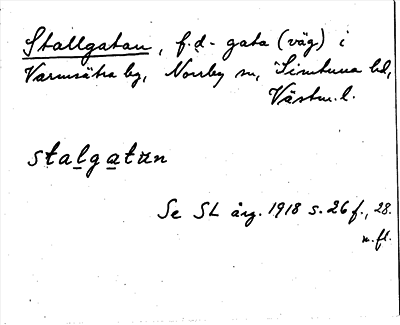 Stallgatan, f.d. gata (väg) i
Varmsätra by, Norrby sn, Simtuna hd,
Västm.l.
stalgatan
Se SL årg. 1918 s. 26 f., 28.
m.fl.